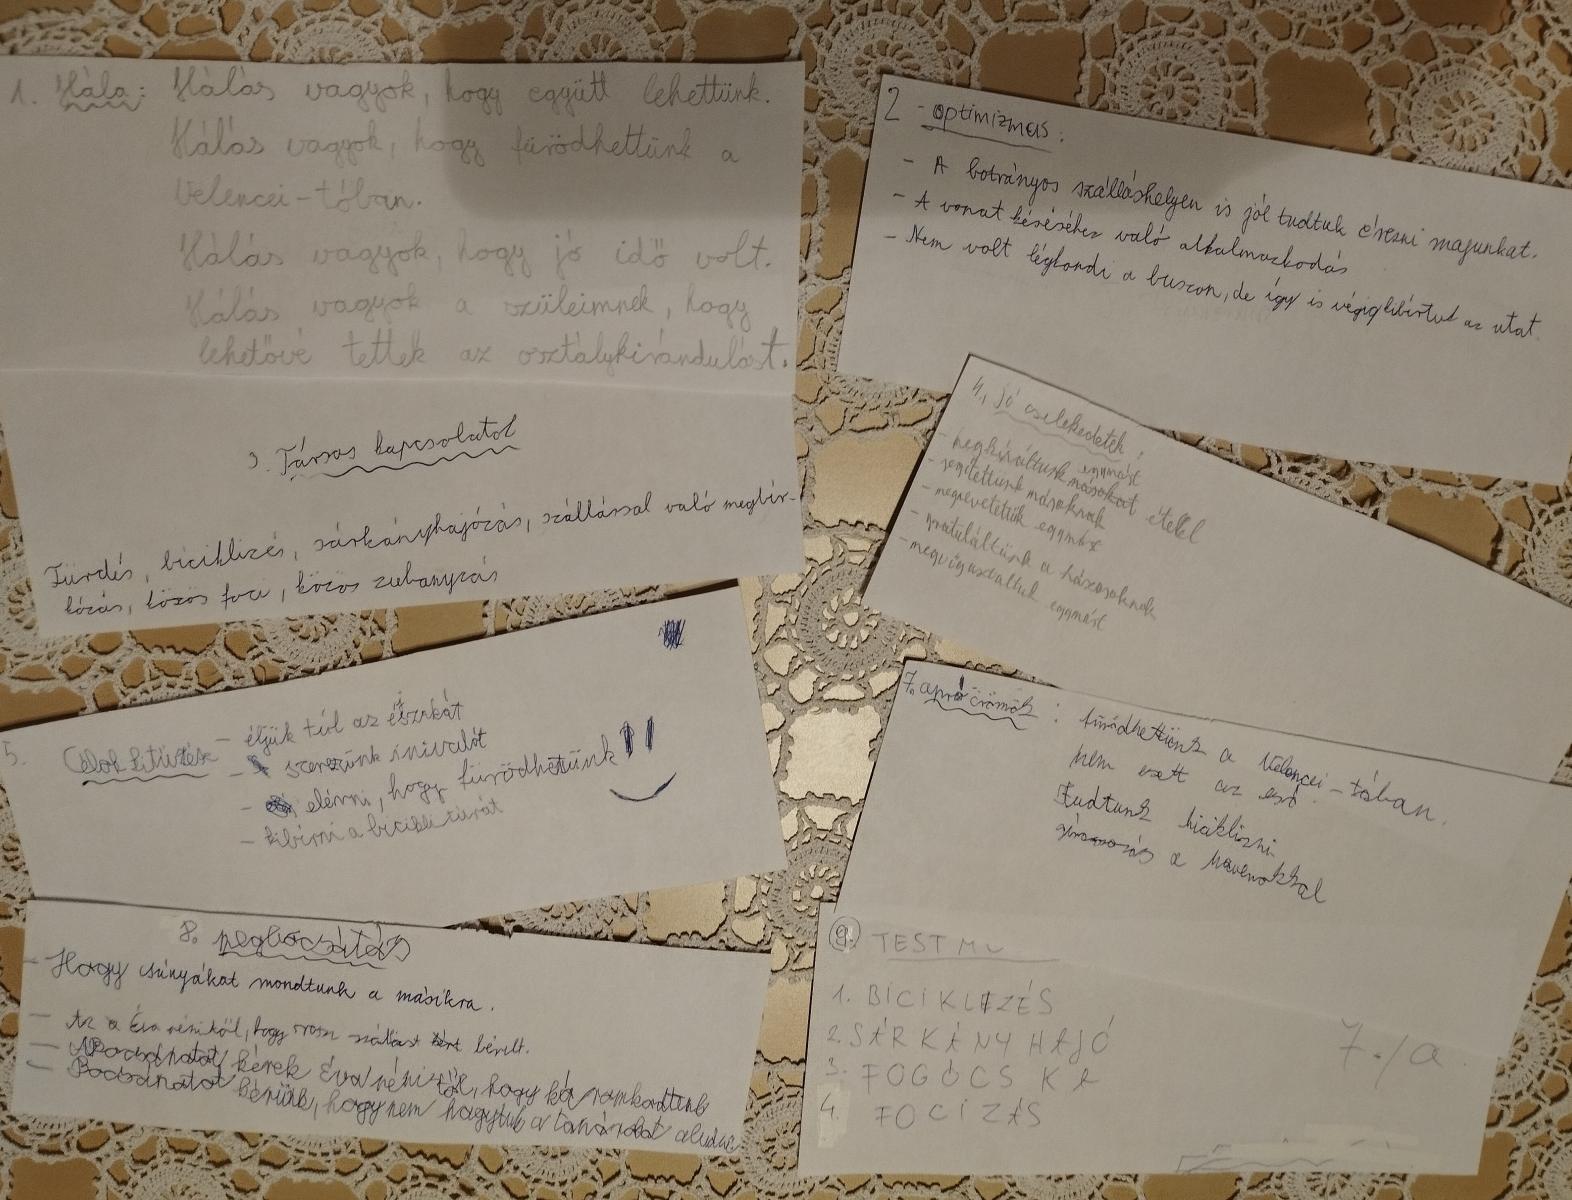 1. Hála: Hálás vagyok, hogy együtt lehettünk.
Hálás vagyok, hogy fürödhettünk a
Velencei-tóban.
Hálás vagyok, hogy jó idő volt.
Hálás vagyok a szüleimnek, hogy
lehetővé tették az osztálykirándulást.
2 - optimizmus:
- A botrányos szálláshelyen is jól tudtuk érezni magunkat.
- A vonat késéséhez való alkalmazkodás
- Nem volt légkondi a buszon, de így is végigkibírtuk az utat.
3. Társas kapcsolatok
Fürdés, biciklizés, sárkányhajózás, szállással való megbir-
kózás, közös foci, közös zuhanyzás
4. jó cselekedetek:
- megkínáltunk másokat étellel
egymást
- segítettünk másoknak
- megnevettettük egymást
- gratuláltunk a
- megvigasztaltuk egymást
5. Célok kitűzése - éljük túl az éjszakát
- szerezzünk innivalót
- elérni, hogy fürödhetünk!!
- kibírni a bicikli túrát
7. apró örömök: fürödhettünk a Velencei-tóban.
nem esett az eső.
tudtunk biciklizni.
a haverokkal
8. megbocsátás
- Hogy csúnyákat mondtunk a másikra.
- Az a Éva nénitől, hogy rossz szállást bérelt.
- Bocsánatot kérek Éva nénitől, hogy
- Bocsánatot kérünk, hogy nem hagytuk a tanárokat aludni
9. TESTM
1. BICIKLIZÉS
2. SÁRKÁNYHAJÓ
3. FOGÓCSKA
4. FOCIZÁS
7./a